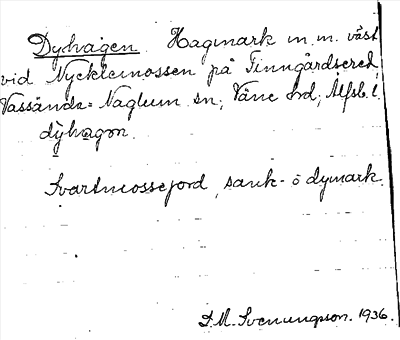 Dyhagen. Hagmark m. m. väst
vid Nycklemossen på Finngårdsered,
Vassända-Naglum sn; Väne hd; Älfsb. l.
dỳhagon.
Svartmossejord, sank- o dymark.
D. M. Svenungsson. 1936.